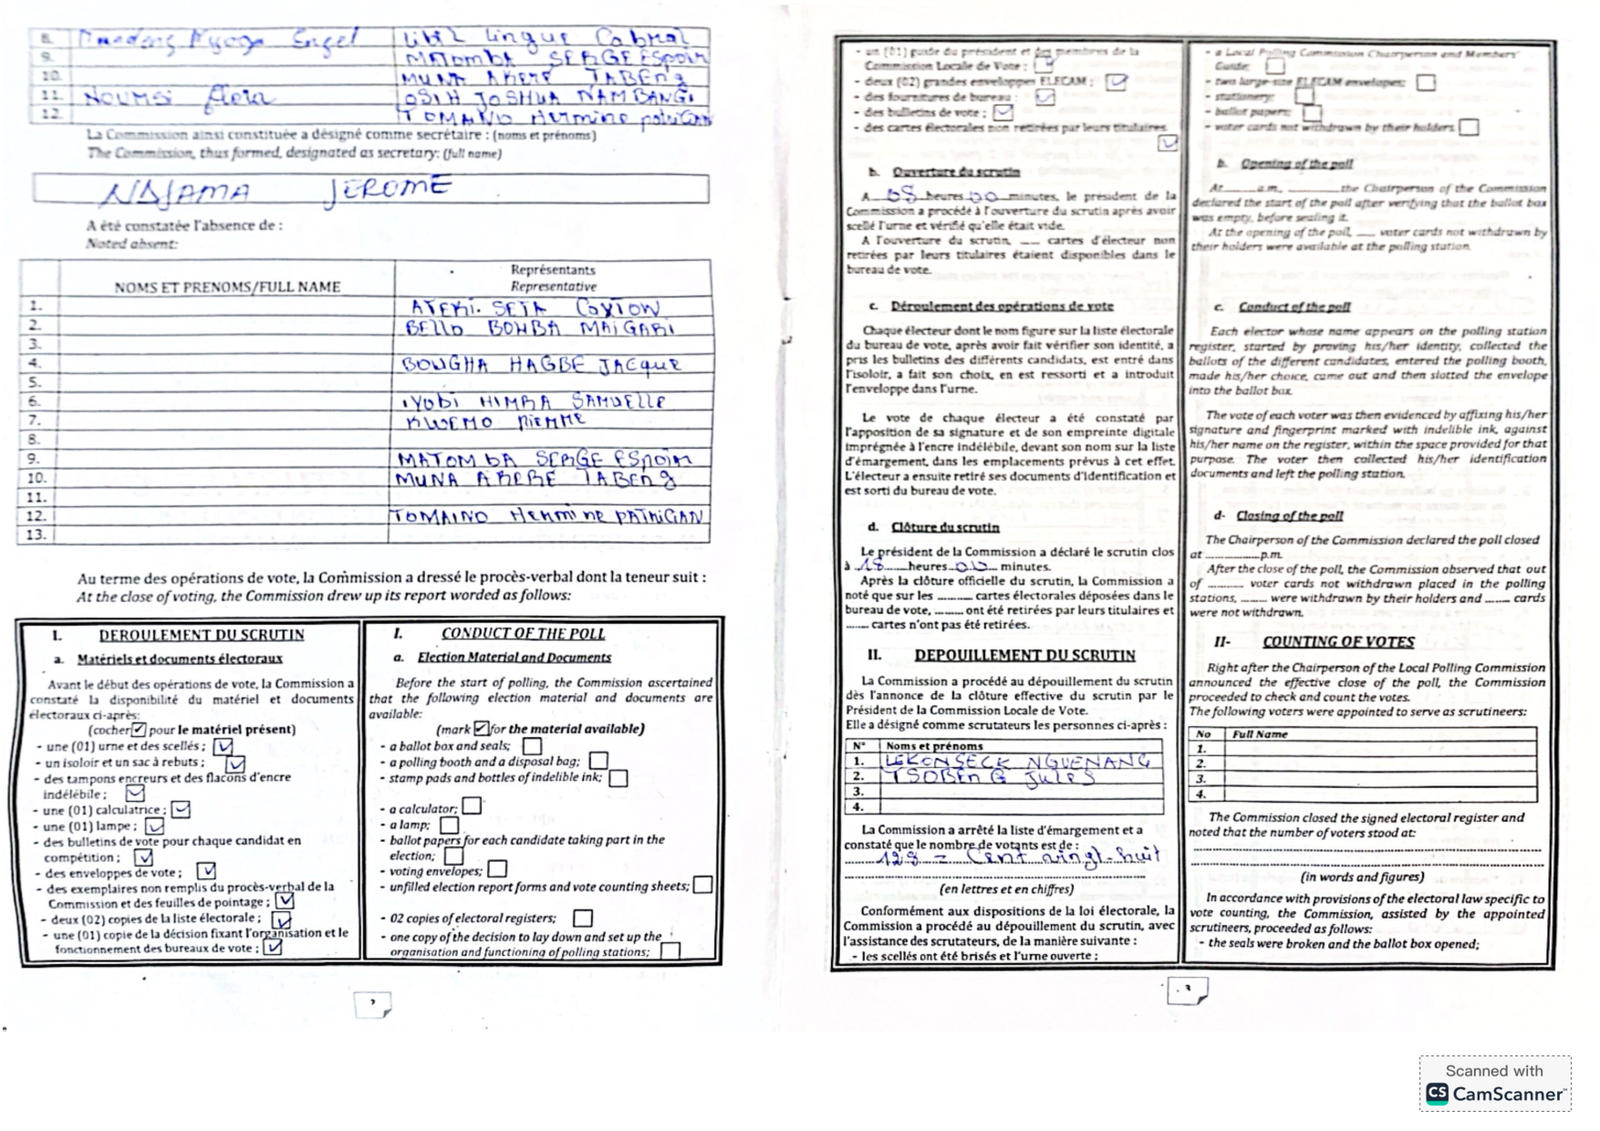 8. Engel Libii Lingue Cabral
9. MATOMBA SERGE ESPOIR
10. MUNA AKERE TABENG
11. NOUMSI Flora OSIH JOSHUA NAMBANGI
12. TOMAINO Hermine patrician
La Commission ainsi constituée a désigné comme secrétaire : (noms et prénoms)
The Commission, thus formed, designated as secretary: (full name)
NDJAMA JEROME
A été constatée l'absence de :
Noted absent:
NOMS ET PRENOMS/FULL NAME
Représentants
Representative
1. ATEKI SETA CAXTON
2. BELLO BOUBA MAIGARI
3.
4. BOUGHA HAGBE JACque
5.
6. IYOBI HIMBA SAMUELLE
7. KWEMO PIERRE
8.
9. MATOMBA SERGE ESpoir
10. MUNA AKERE TABENg
11.
12. TOMAINO HERMINE PATRICIAN
13.
Au terme des opérations de vote, la Commission a dressé le procès-verbal dont la teneur suit :
At the close of voting, the Commission drew up its report worded as follows:
I. DEROULEMENT DU SCRUTIN
a. Matériels et documents électoraux
Avant le début des opérations de vote, la Commission a
constaté la disponibilité du matériel et documents
électoraux ci-après:
(cocher ☑ pour le matériel présent)
- une (01) urne et des scellés ; ☑
- un isoloir et un sac à rebuts ; ☑
- des tampons encreurs et des flacons d'encre
indélébile ; ☑
- une (01) calculatrice ; ☑
- une (01) lampe ; ☑
- des bulletins de vote pour chaque candidat en
compétition ; ☑
- des enveloppes de vote ; ☑
- des exemplaires non remplis du procès-verbal de la
Commission et des feuilles de pointage ; ☑
- deux (02) copies de la liste électorale ; ☑
- une (01) copie de la décision fixant l'organisation et le
fonctionnement des bureaux de vote ; ☑
I. CONDUCT OF THE POLL
a. Election Material and Documents
Before the start of polling, the Commission ascertained
that the following election material and documents are
available:
(mark ☑ for the material available)
- a ballot box and seals; ☐
- a polling booth and a disposal bag; ☐
- stamp pads and bottles of indelible ink; ☐
- a calculator; ☐
- a lamp; ☐
- ballot papers for each candidate taking part in the
election; ☐
- voting envelopes; ☐
- unfilled election report forms and vote counting sheets; ☐
- 02 copies of electoral registers; ☐
- one copy of the decision to lay down and set up the
organisation and functioning of polling stations; ☐
2
- un (01) guide du président et des membres de la
Commission Locale de Vote ; ☑
- deux (02) grandes enveloppes ELECAM ; ☑
- des fournitures de bureau ; ☑
- des bulletins de vote ; ☑
- des cartes électorales non retirées par leurs titulaires.
☑
b. Ouverture du scrutin
A 08 heures 00 minutes, le président de la
Commission a procédé à l'ouverture du scrutin après avoir
scellé l'urne et vérifié qu'elle était vide.
A l'ouverture du scrutin, ____ cartes d'électeur non
retirées par leurs titulaires étaient disponibles dans le
bureau de vote.
c. Déroulement des opérations de vote
Chaque électeur dont le nom figure sur la liste électorale
du bureau de vote, après avoir fait vérifier son identité, a
pris les bulletins des différents candidats, est entré dans
l'isoloir, a fait son choix, en est ressorti et a introduit
l'enveloppe dans l'urne.
Le vote de chaque électeur a été constaté par
l'apposition de sa signature et de son empreinte digitale
imprégnée à l'encre indélébile, devant son nom sur la liste
d'émargement, dans les emplacements prévus à cet effet.
L'électeur a ensuite retiré ses documents d'identification et
est sorti du bureau de vote.
d. Clôture du scrutin
Le président de la Commission a déclaré le scrutin clos
à 18 heures 00 minutes.
Après la clôture officielle du scrutin, la Commission a
noté que sur les ........ cartes électorales déposées dans le
bureau de vote, ........ ont été retirées par leurs titulaires et
........ cartes n'ont pas été retirées.
II. DEPOUILLEMENT DU SCRUTIN
La Commission a procédé au dépouillement du scrutin
dès l'annonce de la clôture effective du scrutin par le
Président de la Commission Locale de Vote.
Elle a désigné comme scrutateurs les personnes ci-après :
N° Noms et prénoms
1. LEKONSECK NGUENANG
2. TSOBENG JULES
3.
4.
La Commission a arrêté la liste d'émargement et a
constaté que le nombre de votants est de :
128 = Cent vingt-huit
(en lettres et en chiffres)
Conformément aux dispositions de la loi électorale, la
Commission a procédé au dépouillement du scrutin, avec
l'assistance des scrutateurs, de la manière suivante :
- les scellés ont été brisés et l'urne ouverte ;
- a Local Polling Commission Chairperson and Members'
Guide; ☐
- two large-size ELECAM envelopes; ☐
- stationery; ☐
- ballot papers; ☐
- voter cards not withdrawn by their holders. ☐
b. Opening of the poll
At ____ a.m, ____ the Chairperson of the Commission
declared the start of the poll after verifying that the ballot box
was empty, before sealing it.
At the opening of the poll, ____ voter cards not withdrawn by
their holders were available at the polling station.
c. Conduct of the poll
Each elector whose name appears on the polling station
register, started by proving his/her identity, collected the
ballots of the different candidates, entered the polling booth,
made his/her choice, came out and then slotted the envelope
into the ballot box.
The vote of each voter was then evidenced by affixing his/her
signature and fingerprint marked with indelible ink, against
his/her name on the register, within the space provided for that
purpose. The voter then collected his/her identification
documents and left the polling station.
d- Closing of the poll
The Chairperson of the Commission declared the poll closed
at ............ p.m.
After the close of the poll, the Commission observed that out
of ........ voter cards not withdrawn placed in the polling
stations, ........ were withdrawn by their holders and ........ cards
were not withdrawn.
II- COUNTING OF VOTES
Right after the Chairperson of the Local Polling Commission
announced the effective close of the poll, the Commission
proceeded to check and count the votes.
The following voters were appointed to serve as scrutineers:
No Full Name
1.
2.
3.
4.
The Commission closed the signed electoral register and
noted that the number of voters stood at:
(in words and figures)
In accordance with provisions of the electoral law specific to
vote counting, the Commission, assisted by the appointed
scrutineers, proceeded as follows:
- the seals were broken and the ballot box opened;
3
Scanned with
CS CamScanner